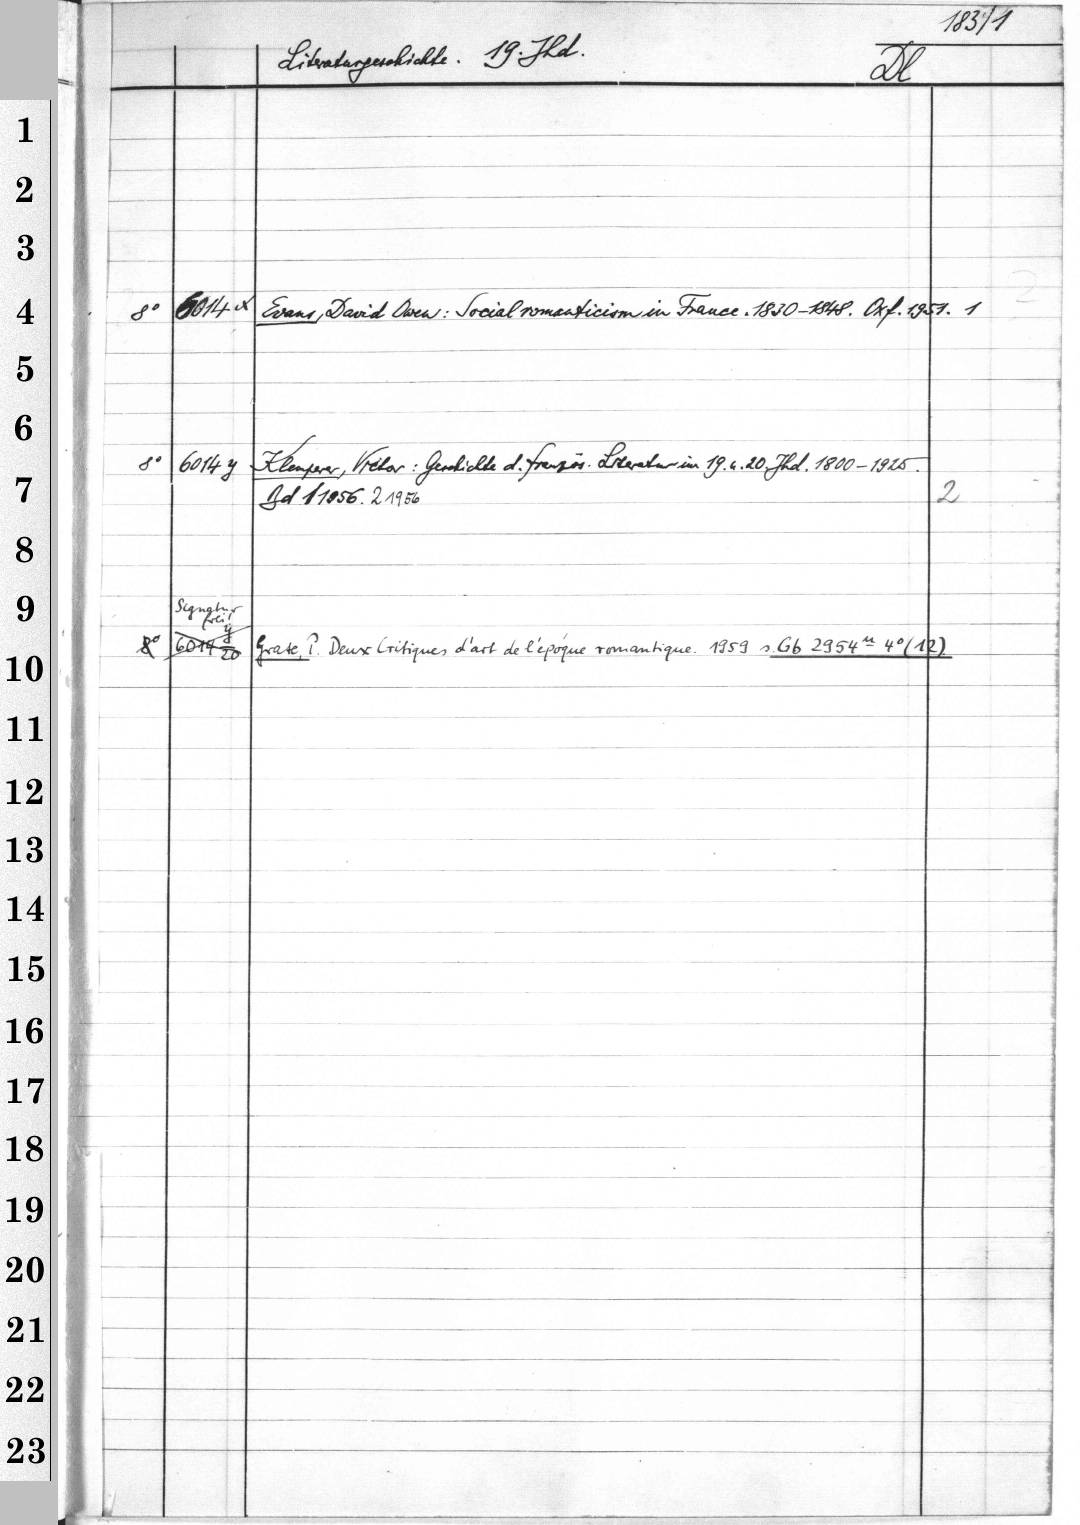 183/1
Literaturgeschichte. 19. Jhd.
Dl
1
2
3
4
8° 6014 x Evans, David Owen: Social romanticism in France. 1830-1848. Oxf. 1951. 1
5
6
8° 6014 y Klemperer, Victor: Geschichte d. französ. Literatur im 19. u. 20. Jhd. 1800-1925.
7
Bd 1 1956. 2 1956 2
8
9
Signatur
frei!
8° 6014 y/8/20 Grate, P. Deux Critiques d'art de l'époque romantique. 1959 s. Gb 2954ᵐ 4° (12)
10
11
12
13
14
15
16
17
18
19
20
21
22
23